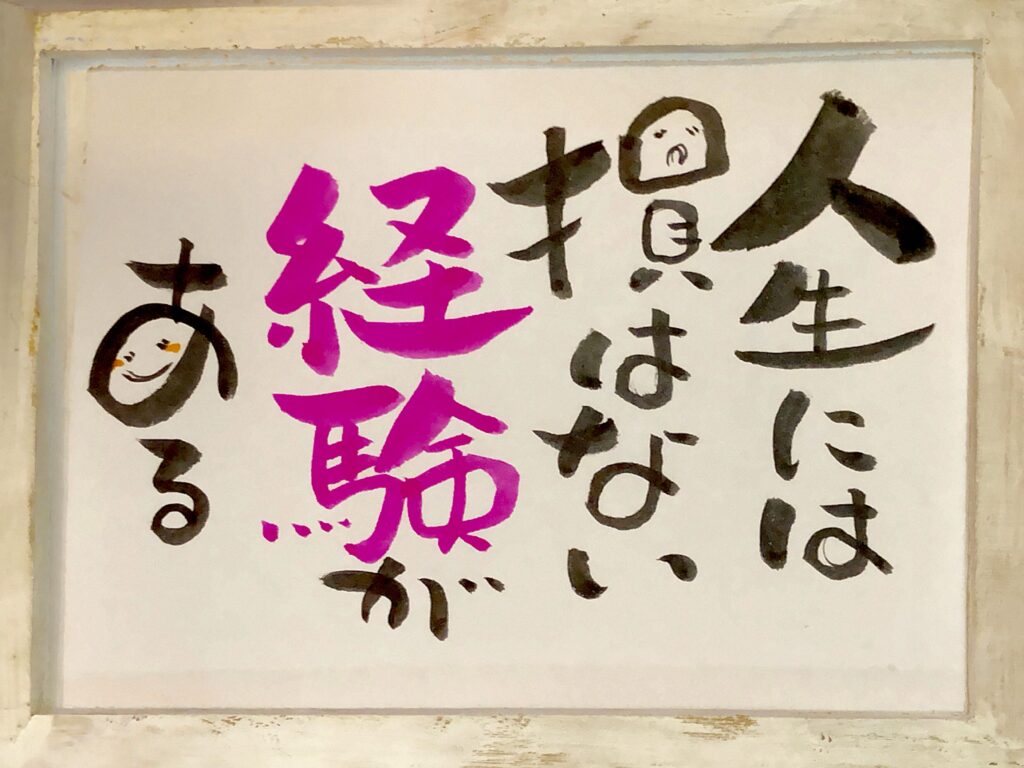 人生には
損はない
経験が
ある